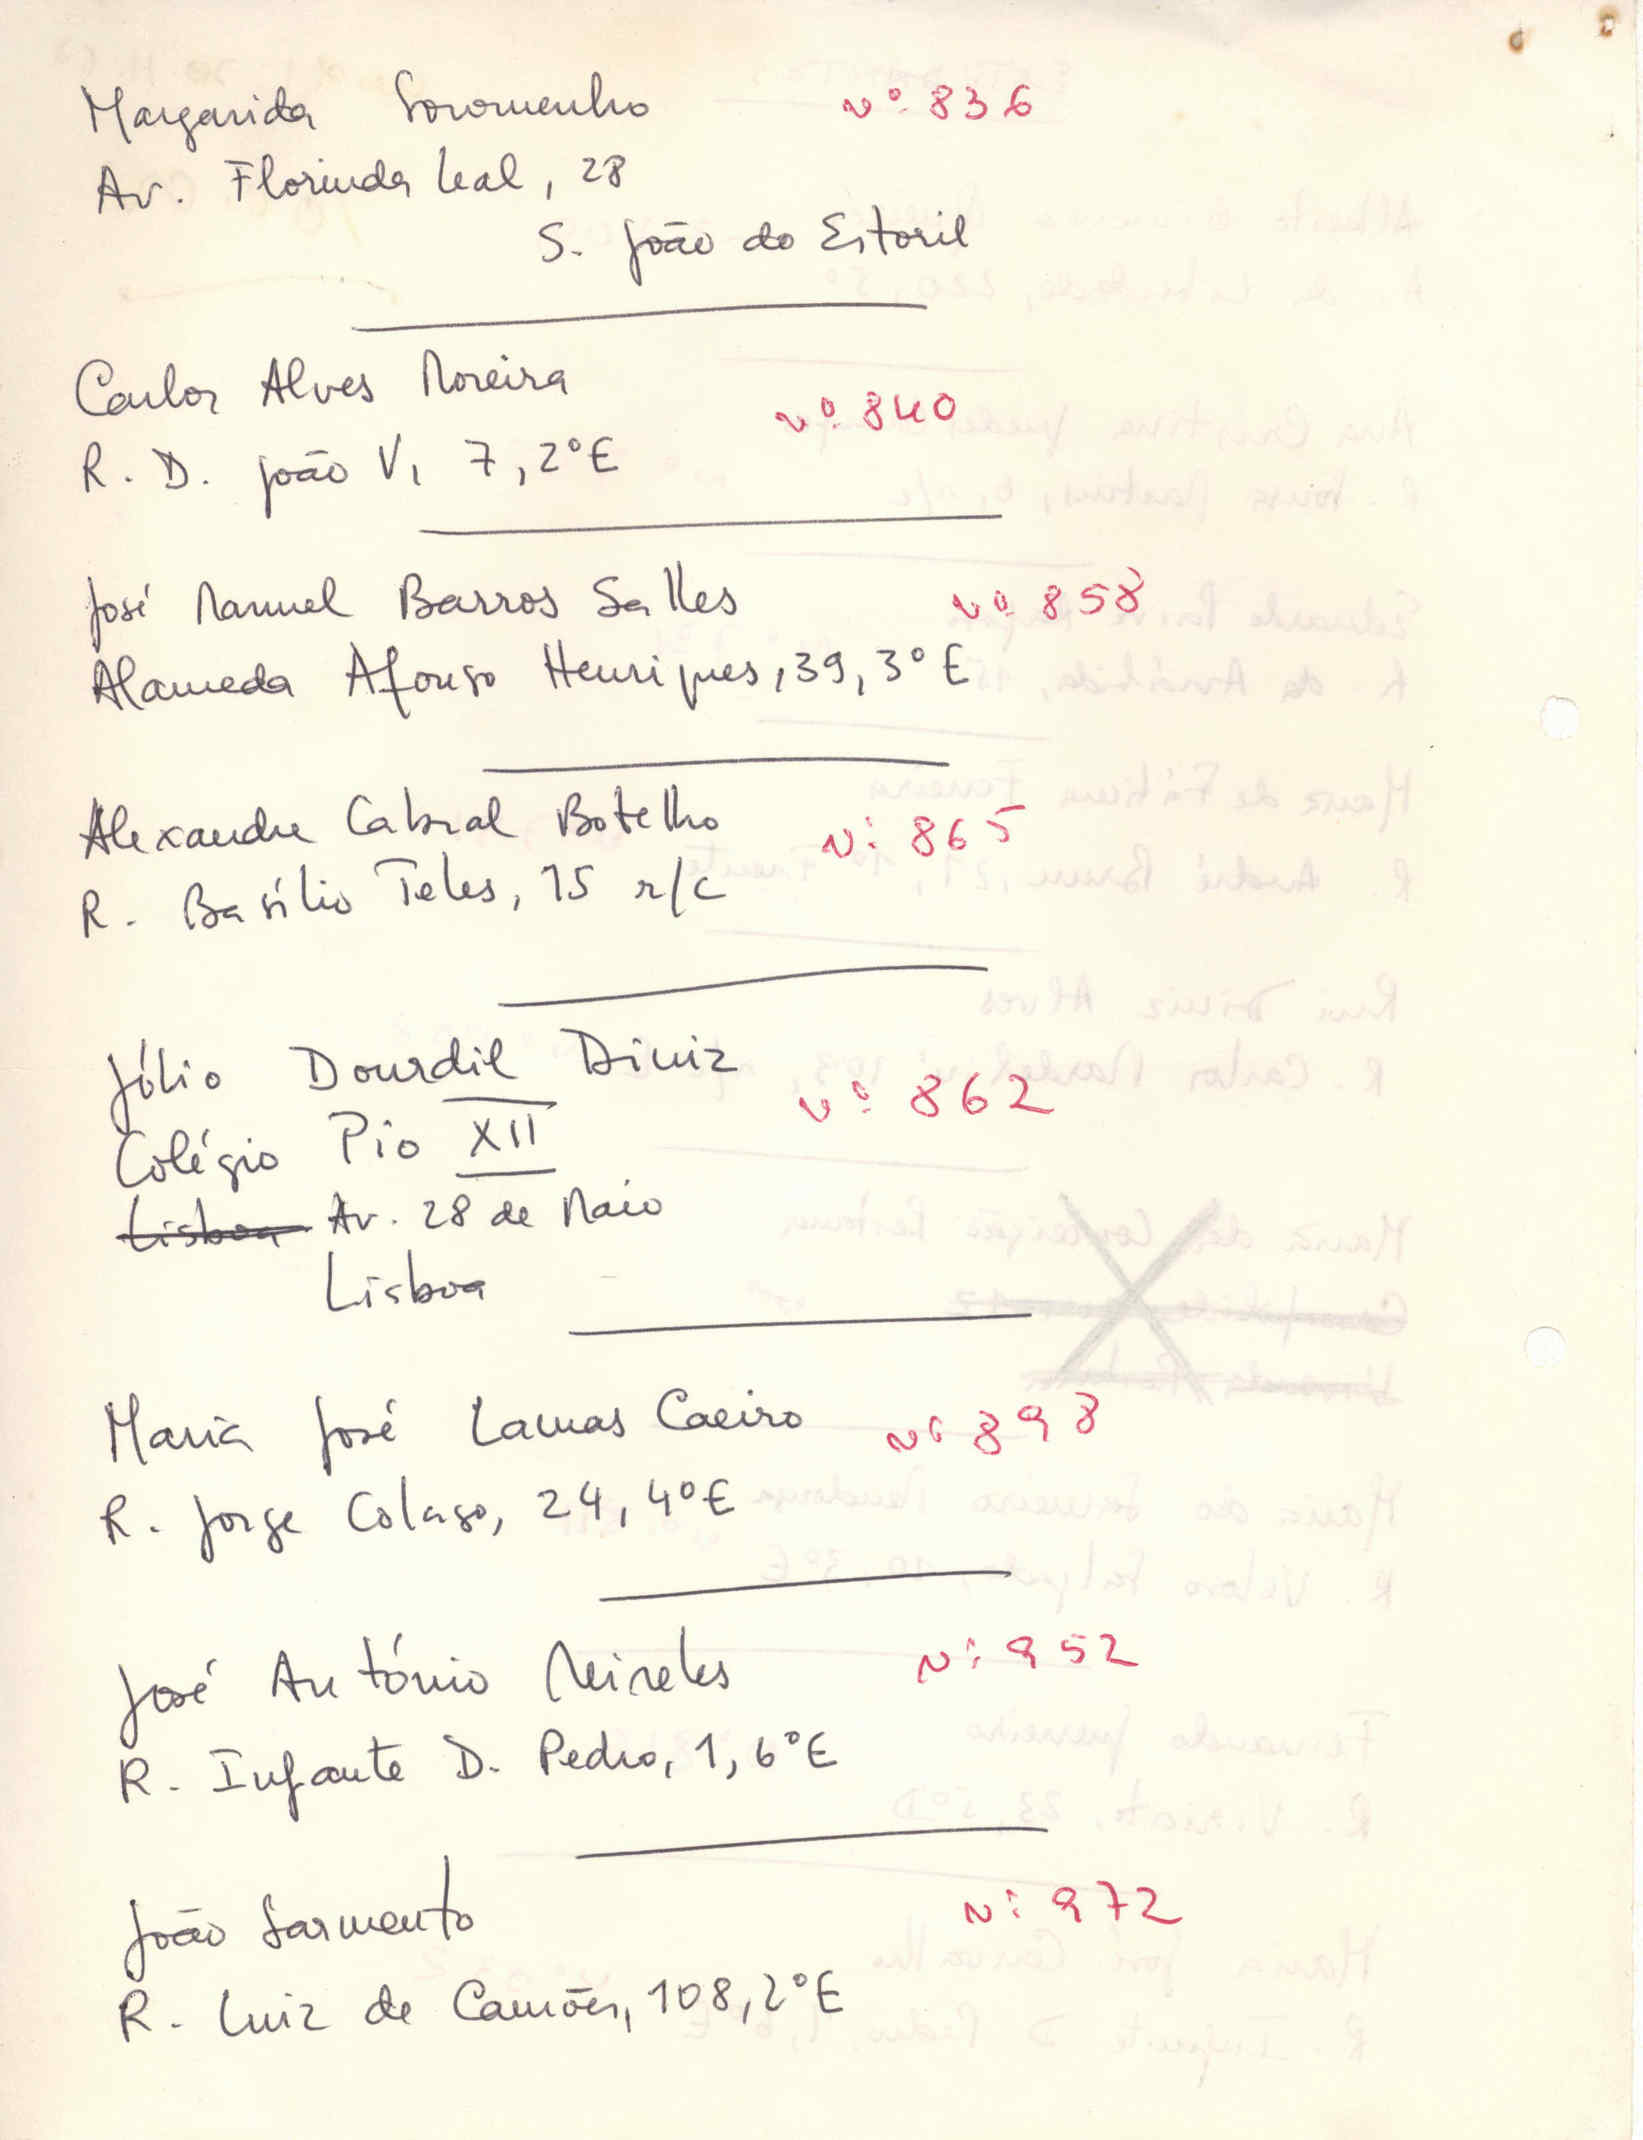 Margarida Soromenho nº 836
Av. Florinda Leal, 28
S. João do Estoril
Carlos Alves Moreira
nº 840
R. D. João V, 7, 2º E
José Manuel Barros Salles nº 858
Alameda Afonso Henriques, 39, 3º E
Alexandre Cabral Botelho nº 865
R. Basílio Teles, 15 r/c
Júlio Dourdil Diniz
nº 862
Colégio Pio XII
Lisboa Av. 28 de Maio
Lisboa
Maria José Lamas Caeiro nº 898
R. Jorge Colaço, 24, 4º E
José António Meireles nº 952
R. Infante D. Pedro, 1, 6º E
João Sarmento nº 972
R. Luiz de Camões, 108, 2º E